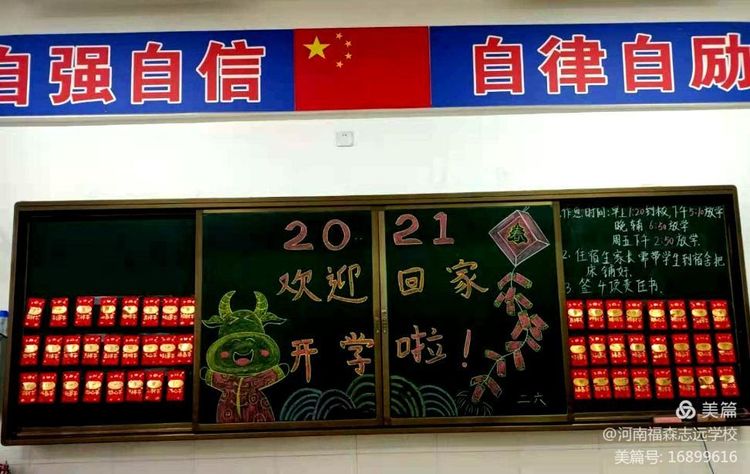 自强自信
自律自励
2021
欢迎回家
开学啦！
春
二六
1.作息时间:早上1:20到校,下午5:10放学
晚辅 6:50放学
周五下午 2:50放学.
2. 住宿生家长需带学生到宿舍把
床铺好.
3 签4项责任书.
美篇
@河南福森志远学校
美篇号: 16899616